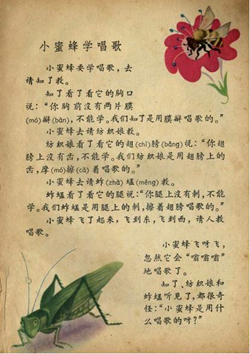 小蜜蜂学唱歌
小蜜蜂要学唱歌，去
请知了教。
知了看了看它的胸口
说：“你胸前没有两片膜
(mó)瓣(bàn)，不能学。我们知了是用膜瓣唱歌的。”
小蜜蜂去请纺织娘教。
纺织娘看了看它的翅(chì)膀(bǎng)说：“你翅
膀上没有齿，不能学。我们纺织娘是用翅膀上的
齿，摩(mó)擦(cā)着唱歌的。”
小蜜蜂去请蚱(zhà)蜢(měng)教。
蚱蜢看了看它的腿说：“你腿上没有刺，不能
学。我们蚱蜢是用腿上的刺，擦着翅膀唱歌的。”
小蜜蜂飞了起来，飞到东，飞到西，请人教
唱歌。
小蜜蜂飞呀飞，
忽然它会“嗡嗡嗡”
地唱歌了。
知了、纺织娘和
蚱蜢听见了，都很奇
怪：“小蜜蜂是用什
么唱歌的呀？”